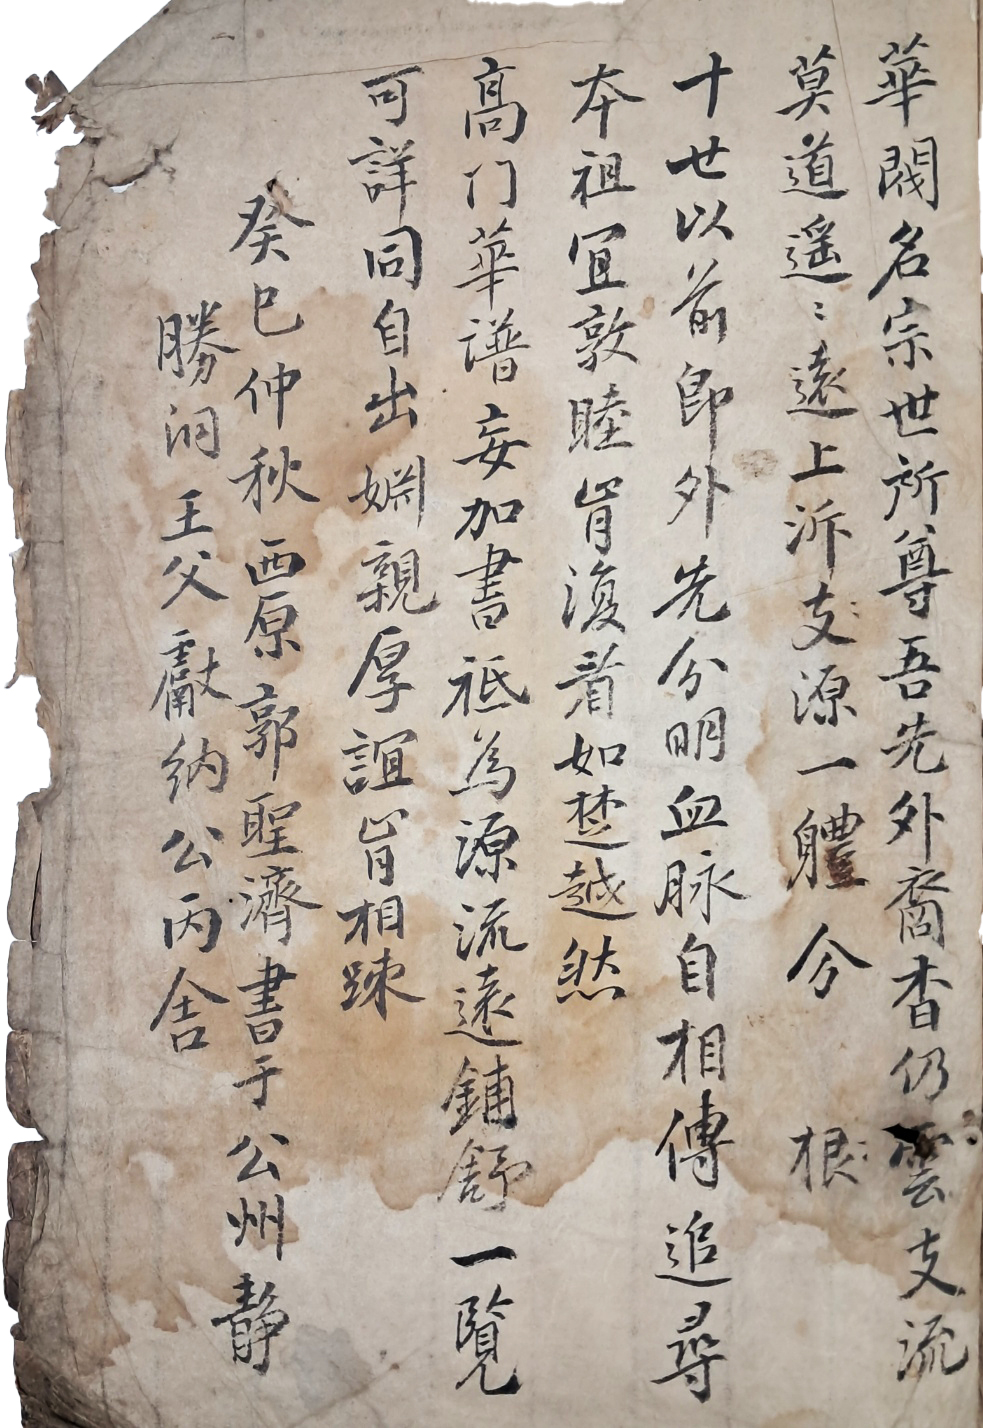 華閥名宗世所尊吾先外裔杳仍雲支流
莫道遥〻遠上泝支〻源一軆分根〻
十世以前卽外先分明血脉自相傳追尋
夲祖冝敦睦肯復看如楚越然
髙门華譜妄加書祇為源流遠鋪舒一覧
可詳同自出婣親厚誼肯相踈
癸巳仲秋西原郭聖濟書于公州静
勝洞王父獻納公丙舎